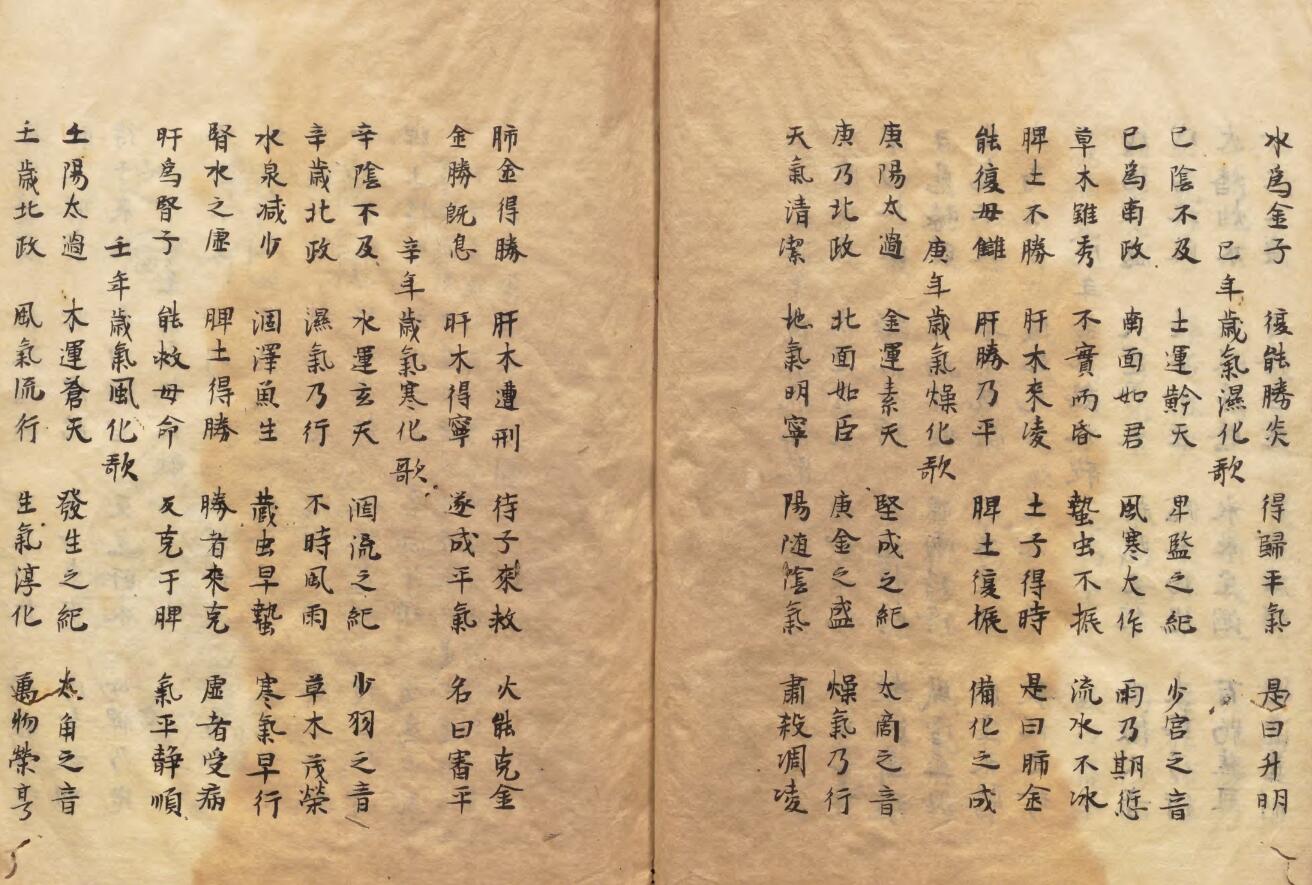 水爲金子 復能勝炎 得歸平氣 是曰升明
己年歲氣濕化歌
己陰不及 土運黅天 卑監之紀 少宮之音
己爲南政 南面如君 風寒大作 雨乃期愆
草木雖秀 不實而昏 蟄虫不振 流水不冰
脾土不勝 肝木來凌 土子得時 是曰肺金
能復母讎 肝勝乃平 脾土復振 備化之成
庚年歲氣燥化歌
庚陽太過 金運素天 堅成之紀 太商之音
庚乃北政 北面如臣 庚金之盛 燥氣乃行
天氣清潔 地氣明寧 陽随陰氣 肅殺凋凌
肺金得勝 肝木遭刑 待子來救 火能克金
金勝旣息 肝木得寧 遂成平氣 名曰審平
辛年歲氣寒化歌
辛陰不及 水運玄天 涸流之紀 少羽之音
辛歲北政 濕氣乃行 不時風雨 草木茂榮
水泉减少 涸澤魚生 藏虫早蟄 寒氣早行
腎水之虛 脾土得勝 勝者來克 虛者受病
肝爲腎子 能救母命 反克于脾 氣平靜順
壬年歲氣風化歌
壬陽太過 木運蒼天 發生之紀 太角之音
壬歲北政 風氣流行 生氣淳化 萬物榮亨